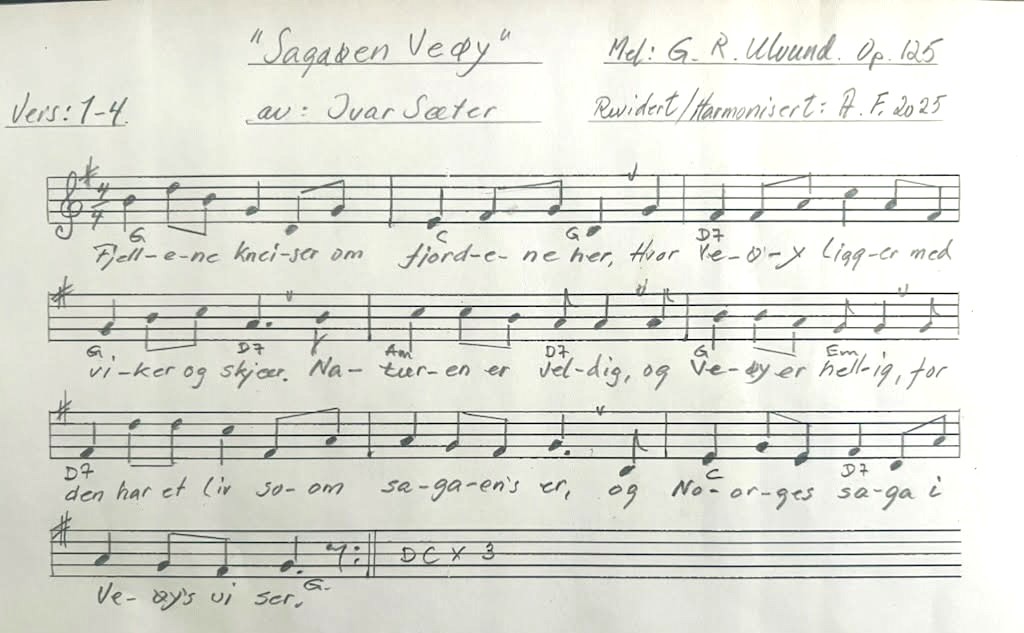 "Sagaøen Veøy" Mel: G. R. Ulvund. Op. 125
Vers: 1-4. av: Ivar Sæter Revidert/Harmonisert: A. F. 2025
4/4
G C G D7
Fjell-e-ne knei-ser om fjord-e-ne her, Hvor Ve-ø-y Ligg-er med
G. D7 Am D7 G Em
vi-ker og skjær. Na-tur-en er vel-dig, og Ve-øy er hell-ig, for
D7 C D7
den har et liv so-om sa-ga-en's er, og No-or-ges sa-ga i
DC X 3
G.
Ve-øy's vi ser.